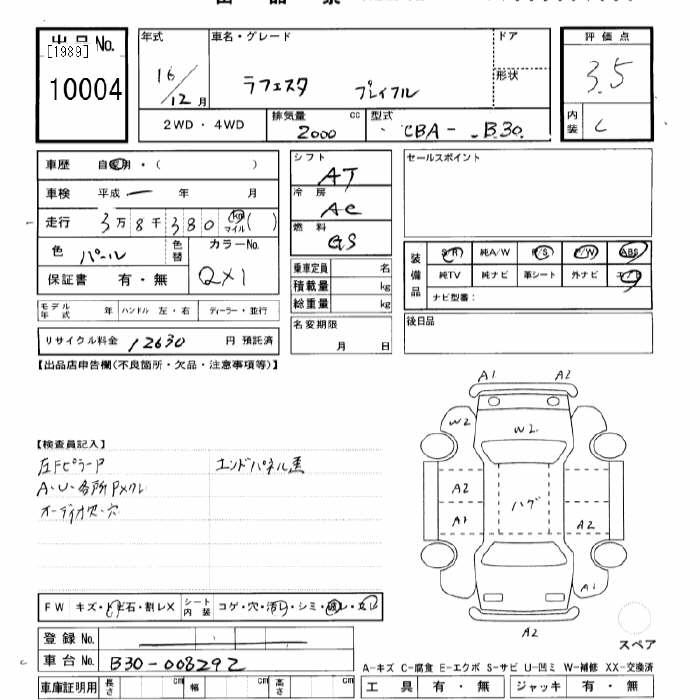 出品 No.
[1989]
10004
年式
16/12月
車名・グレード
ラフェスタ プレイフル
ドア
形状
2WD・4WD
排気量 cc
2000
型式
CBA- B30
評価点
3.5
内装
C
車歴 自家用・( )
車検 平成 ー 年 月
走行 3万8千380 km マイル ( )
色 パール
色替
カラーNo.
QX1
保証書 有・無
モデル年式 年 ハンドル 左・右 ディーラー・並行
リサイクル料金 12630 円 預託済
シフト
AT
冷房
AC
燃料
GS
乗車定員 名
積載量 kg
総重量 kg
名変期限
月 日
セールスポイント
装備品
S/R 純A/W P/S P/W ABS
純TV 純ナビ 革シート 外ナビ
ナビ型番:
後日品
【出品店申告欄(不良箇所・欠品・注意事項等)】
【検査員記入】
左Fピラー P
A・U・各所
オーディオ欠・穴
エンドパネル
A1 A2
W2 W2
A2 ハゲ
A1 A2
A1
A2
スペア
FW キズ・トビ石・割レX
シート内装 コゲ・穴・汚レ・シミ
登録 No.
車台 No. B30-008292
車庫証明用 長さ cm 幅 cm 高さ cm
A-キズ C-腐食 E-エクボ S-サビ U-凹ミ W-補修 XX-交換済
工具 有・無 ジャッキ 有・無